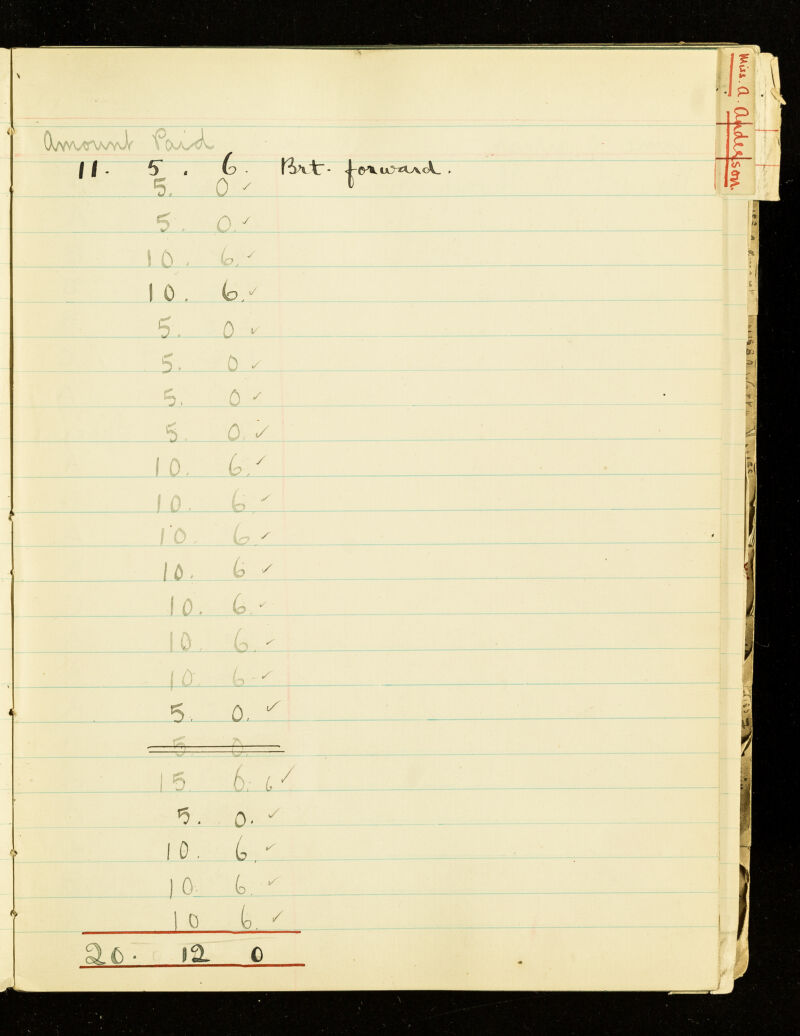 Miss. A. Anderson
Amount Paid
11. 5. 6. Brt. forward.
5. 0 ✓
5. 0. ✓
10. 6. ✓
10. 6. ✓
5. 0 ✓
5. 0 ✓
5. 0 ✓
5. 0. ✓
10. 6. ✓
10. 6. ✓
10. 6. ✓
10. 6 ✓
10. 6. ✓
10. 6. ✓
10. 6. ✓
5. 0. ✓
5. 0.
15 6. 6 ✓
5. 0. ✓
10. 6. ✓
10. 6. ✓
10 6. ✓
20. 12 0